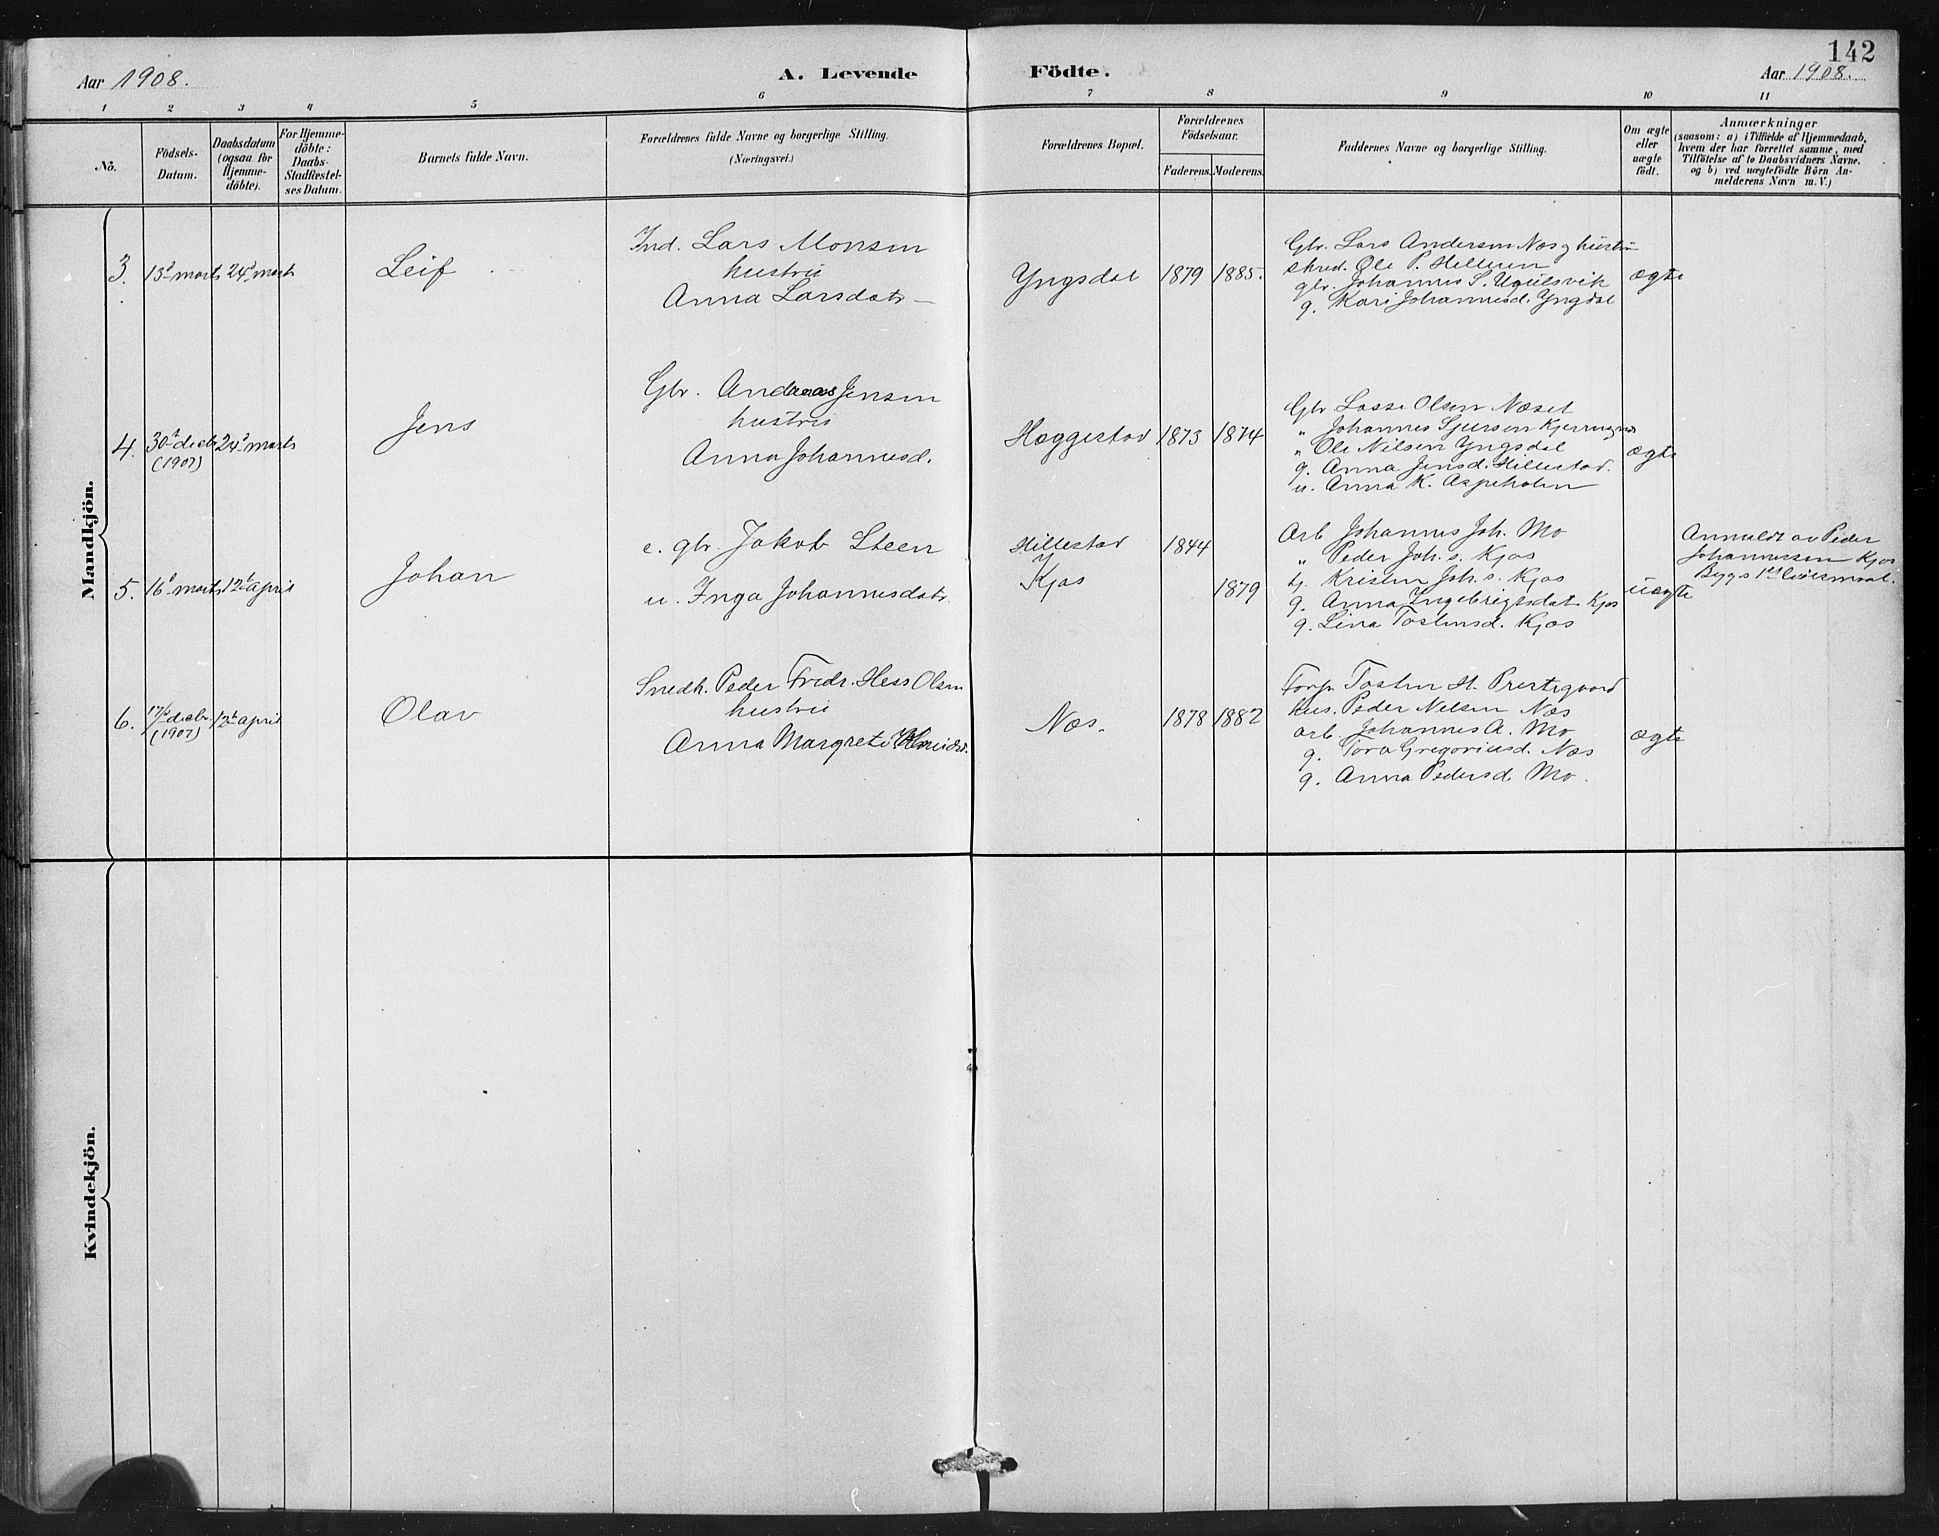 142
Aar 1908.
A. Levende Födte.
Aar 1908.
1 2 3 4 5 6 7 8 9 10 11
No.
Födsels-
Datum.
Daabsdatum
(ogsaa for
Hjemme-
döbte).
For Hjemme-
döbte:
Daabs-
Stadfæstel-
ses Datum.
Barnets fulde Navn.
Forældrenes fulde Navne og borgerlige Stilling.
(Næringsvei.)
Forældrenes Bopæl.
Forældrenes
Födselsaar.
Faderens. Moderens.
Faddernes Navne og borgerlige Stilling.
Om ægte
eller
uægte
födt.
Anmærkninger
(saasom: a) i Tilfælde af Hjemmedaab,
hvem der har forrettet samme, med
Tilföielse af to Daabsvidners Navne.
og b) ved uægtefödte Börn An-
melderens Navn m. V.)
Mandkjön.
3. 13de marts 24de marts
Leif
Ind. Lars Monsen
hustru
Anna Larsdatr
Yngsdal 1879 1885.
Gbr. Lars Andersen Næs og hustru
skred. Ole P. Helleren
gbr. Johannes S.
g. Kari Johannesd. Yngsdal
ægte
4. 30te decbr 24de marts
(1907)
Jens
Gbr. Andreas Jensen
hustru
Anna Johannesd.
Hæggestad 1873 1874
Gbr Lasse Olsen Næset
„ Johannes Sjursen
„ Ole Nilsen Yngsdal
g. Anna Jensd. Hillestad.
u. Anna K. Aspeholm
ægte
5. 16de marts 12te april
Johan
e. gbr. Jakob Steen
u. Inga Johannesdatr.
Hillestad 1844
Kjos 1879
Arb Johannes Joh. Mo
„ Peder Joh. s. Kjos
tj. Kristen Joh. s. Kjos
g. Anna Ingebrigtsdat Kjos
g. Lina Tostensd. Kjos
uægte
Anmeldt av Peder
Johannessen Kjos
Begges 1ste leiermaal.
6. 17/12 decbr. 12te april
(1907)
Olav
Snedk. Peder Fredr. Hess Olsen
hustru
Anna Margrete
Næs. 1878 1882
Forp. Tosten H. Prestegaard
hus. Peder Nilsen Næs
arb. Johannes A. Mo
g. Tora Gregoriusd. Næs
g. Anna Pedersd. Mo.
ægte
Kvindekjön.